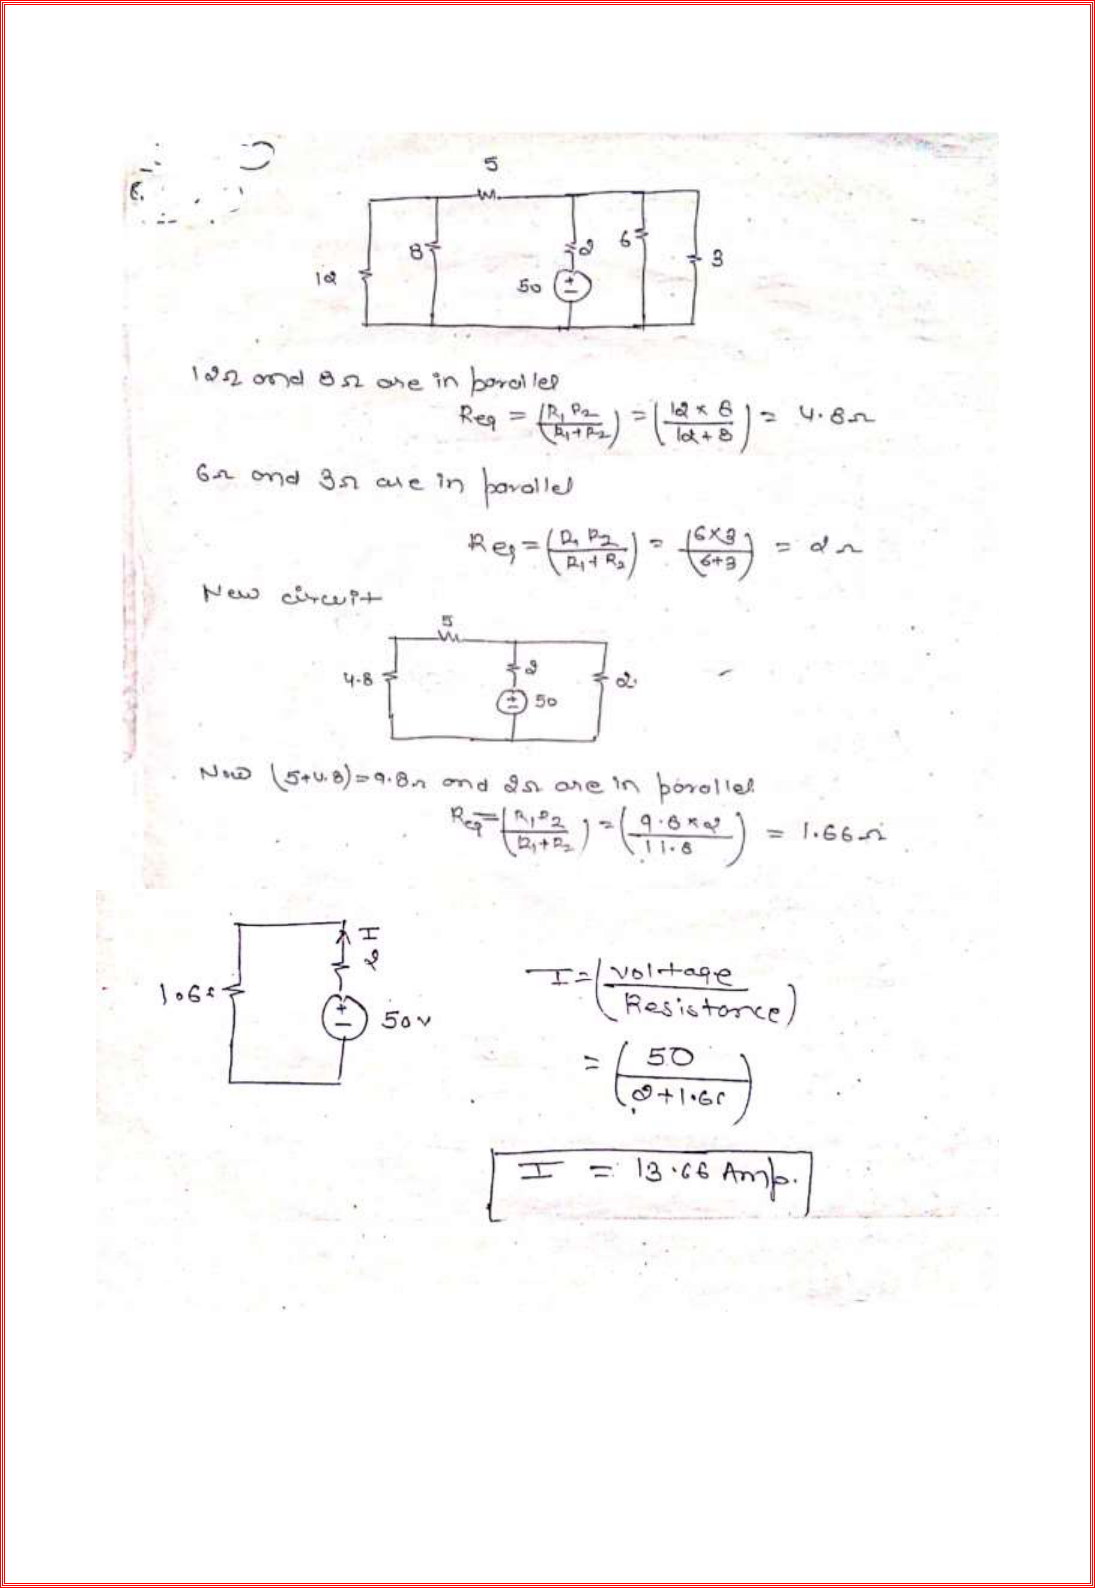 8.
5
12
8
2
50
6
3
12Ω and 8Ω are in parallel
Req = (R1 R2 / R1+R2) = (12 × 8 / 12+8) = 4.8Ω
6Ω and 3Ω are in parallel
Req = (R1 R2 / R1+R2) = (6×3 / 6+3) = 2Ω
New circuit
5
4.8
2
50
2
Now (5+4.8)=9.8Ω and 2Ω are in parallel
Req = (R1 R2 / R1+R2) = (9.8 × 2 / 11.8) = 1.66Ω
I
2
1.66
50V
I = (Voltage / Resistance)
= (50 / 2+1.66)
I = 13.66 Amp.